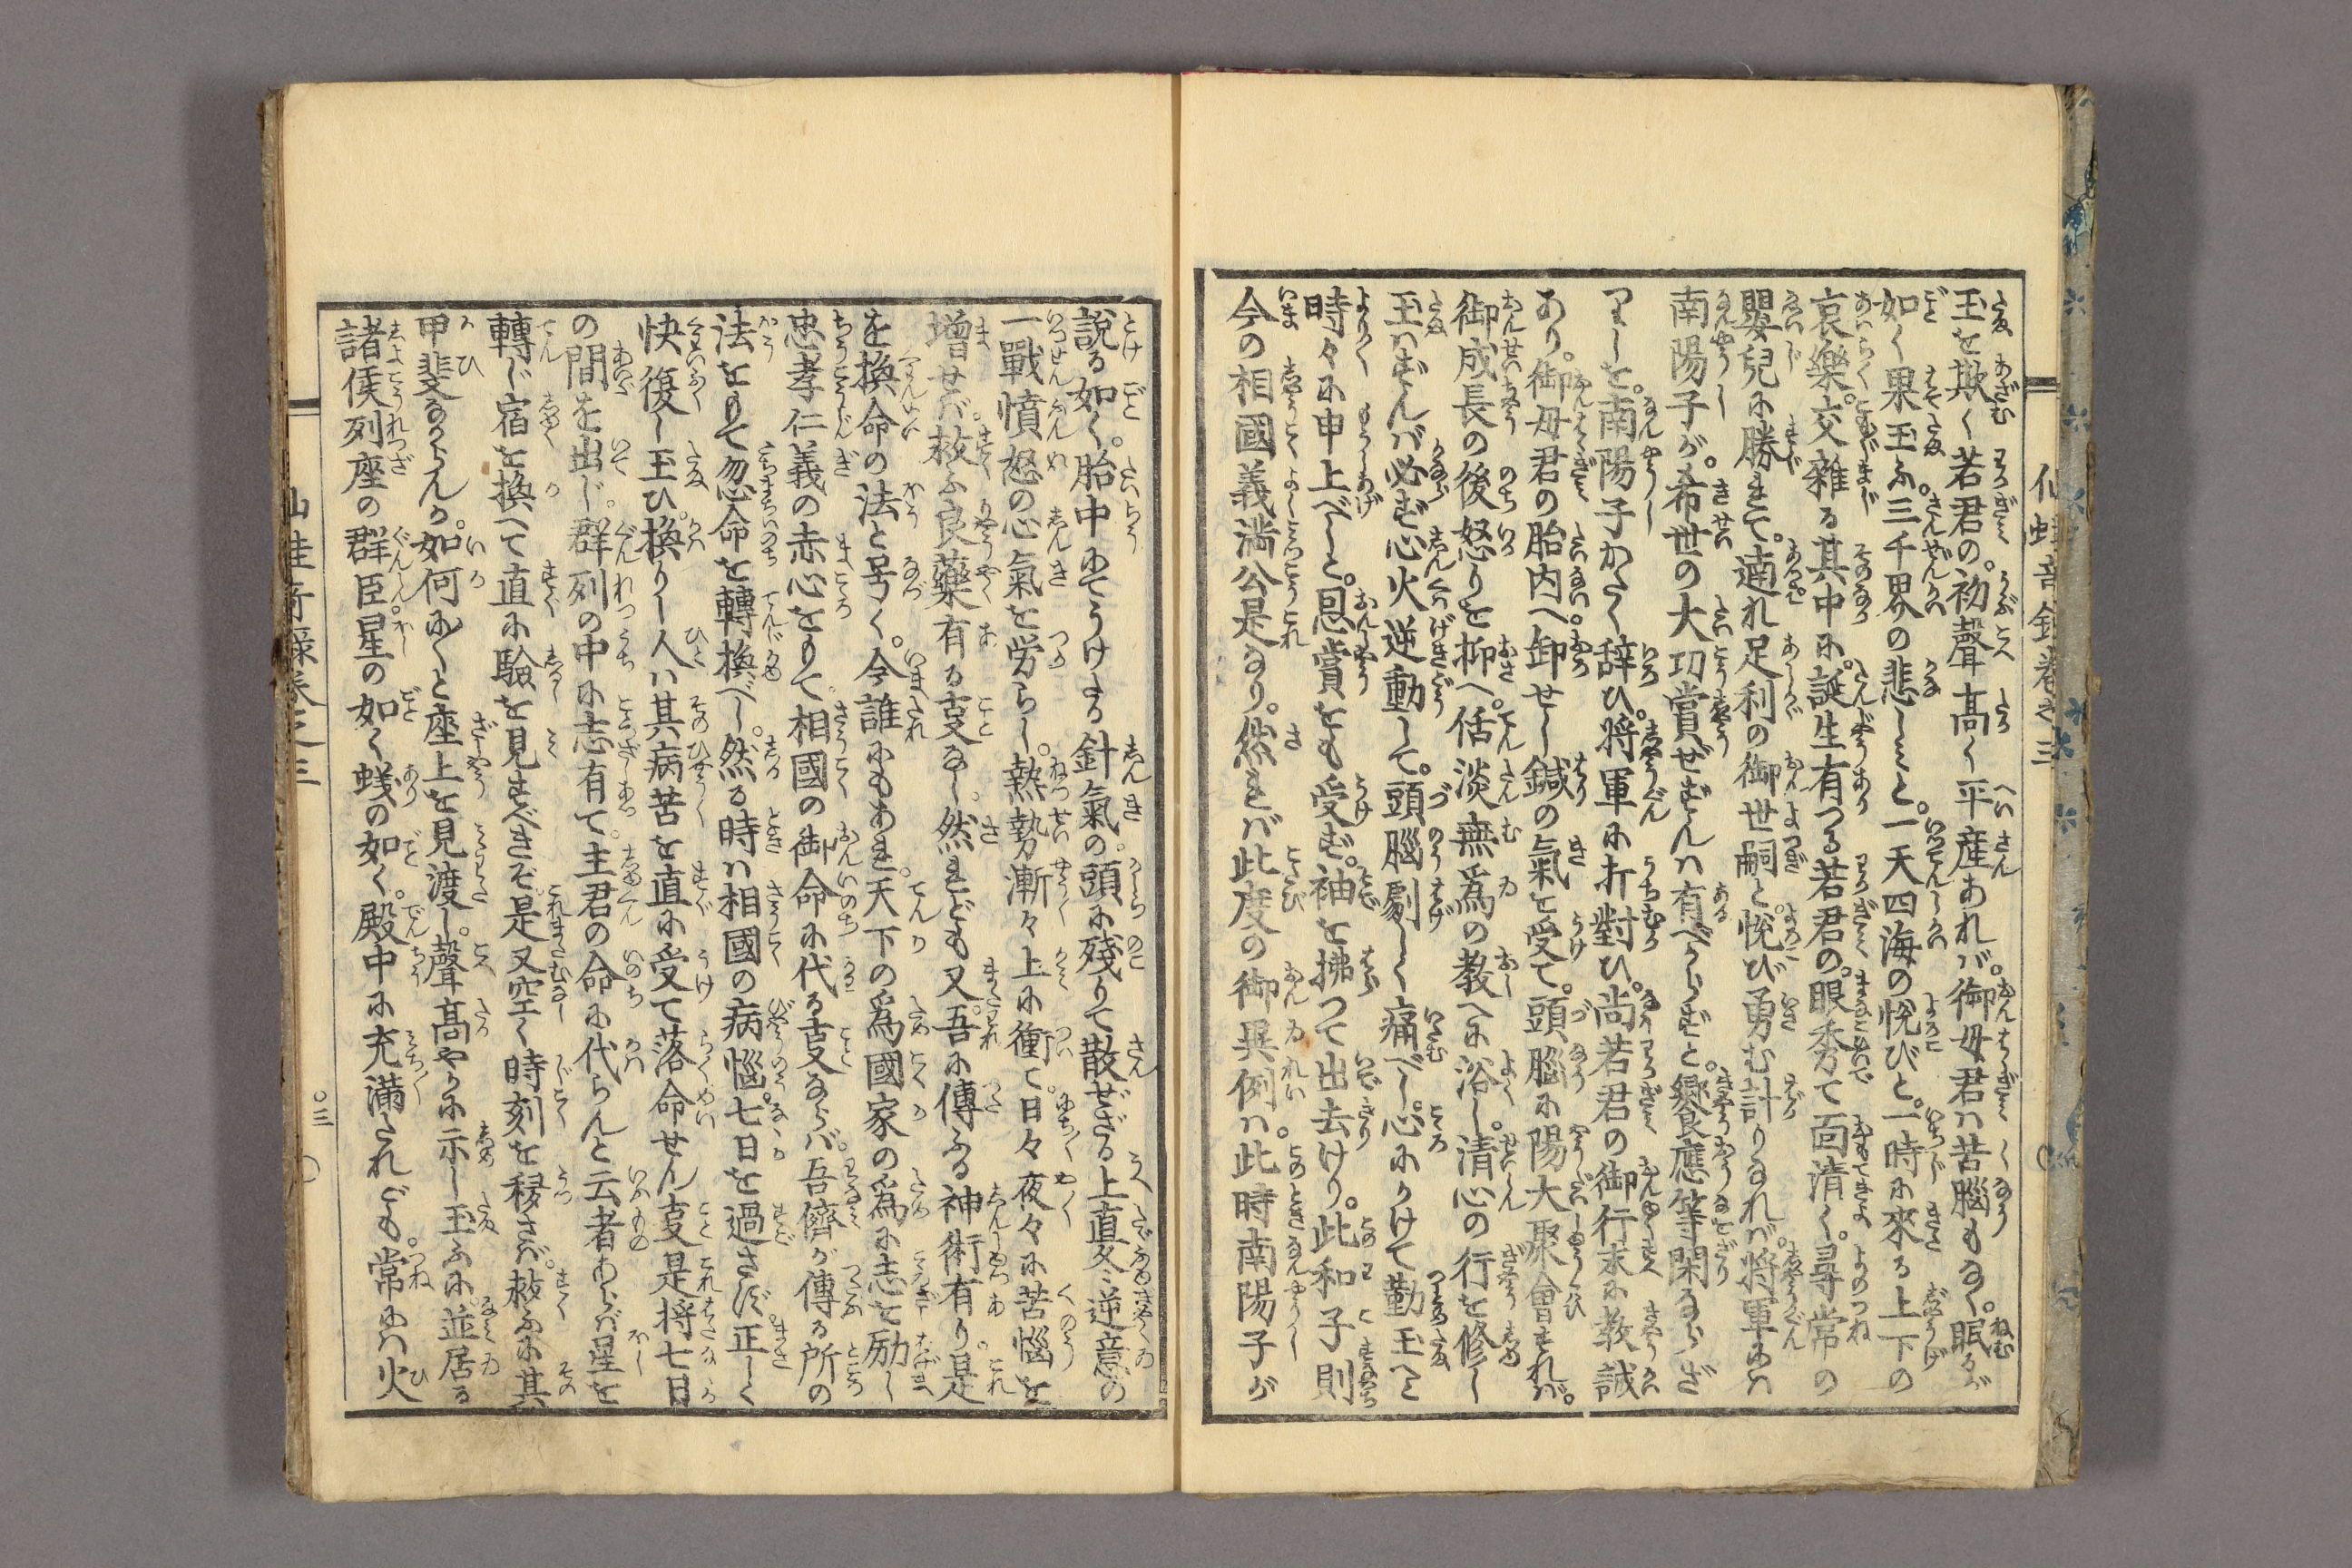 玉を欺く若君の。初聲高く平産あれば。御母君は苦腦もなく。眠るが
如く果玉ふ。三千界の悲しみと。一天四海の悦びと。一時に來る上下の
哀樂。交雜る其中に。誕生有つる若君の。眼秀て面清く。尋常の
嬰兒に勝れて。遖れ足利の御世嗣と。悦び勇む計りなれば。將軍には
南陽子が。希世の大功賞ぜずんは有べからずと。饗應等閑ならざ
りしを。南陽子かたく辞ひ。將軍に打對ひ。尚若君の御行末に教誡
あり。御母君の胎内へ卸せし鍼の氣を受て。頭腦に陽大聚會すれば。
御成長の後怒りを抑へ。恬淡無爲の教へに浴し。清心の行を修し
玉はずんば必ず心火逆動して。頭腦劇しく痛べし。心にかけて勤玉へと
時々に申上べしと。恩賞をも受ず。袖を拂つて出去けり。此和子則
今の相國義満公是なり。然れば此度の御異例は。此時南陽子が
説る如く。胎中にてうけたる針氣の。頭に殘りて散ぜざる上直冬逆意の
一戰憤怒の心氣を労らし。熱勢漸々上に衝て日々夜々に苦惱を
増せば。救ふ良藥有る叓なし。然れども又吾に傳ふる神術有り。是
を換命の法と号く。今誰にもあれ。天下の爲國家の爲に志を励し
忠孝仁義の赤心をもて。相國の御命に代る叓ならば。吾儕が傳る所の
法をもて忽命を轉換べし。然る時は相國の病惱。七日を過さず。正しく
快復し玉ひ。換りし人は其病苦を直に受て落命せん叓是將七日
の間を出じ。群列の中に志有て。主君の命に代らんと云者あらば星を
轉じ宿を換へて直に驗を見すべきぞ。是又空く時刻を移さば。救ふに其
甲斐なからんか。如何に〱と座上を見渡し。聲高やかに示し玉ふに。並居る
諸侯列座の群臣。星の如く蟻の如く。殿中に充滿たれども。常には火
仙 奇 卷之三
奇録卷之三
〇三